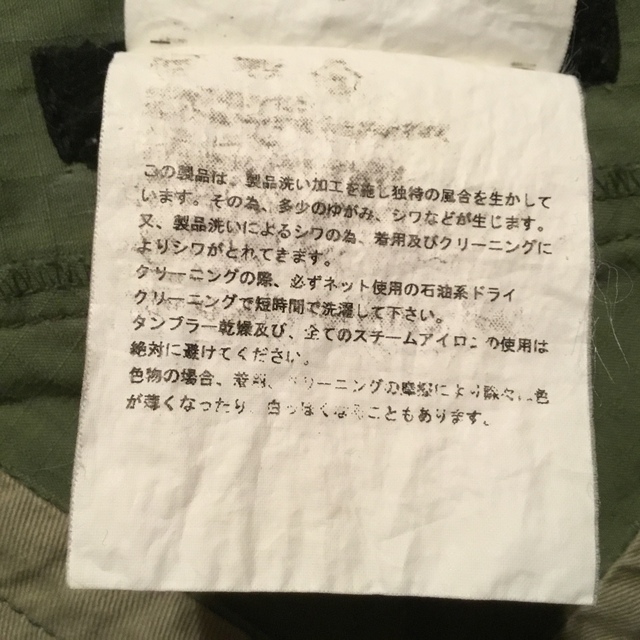 この製品は、製品洗い加工を施し独特の風合を生かして
います。その為、多少のゆがみ、シワなどが生じます。
又、製品洗いによるシワの為、着用及びクリーニングに
よりシワがとれてきます。
クリーニングの際、必ずネット使用の石油系ドライ
クリーニングで短時間で洗濯して下さい。
タンブラー乾燥及び、全てのスチームアイロンの使用は
絶対に避けてください。
色物の場合、着用、クリーニングの摩擦により除々に色
が薄くなったり、白っぽくなることもあります。